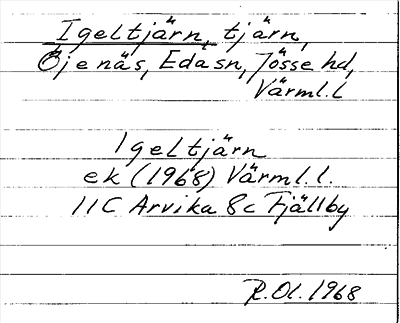 Igeltjärn, tjärn,
Öjenäs, Eda sn, Jösse hd,
Värml. l
Igeltjärn
ek (1968) Värml. l.
11C Arvika 8c Fjällby
R. Ol. 1968